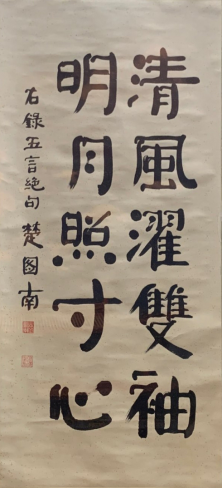 清風濯雙袖
明月照寸心
右錄五言絕句 楚图南